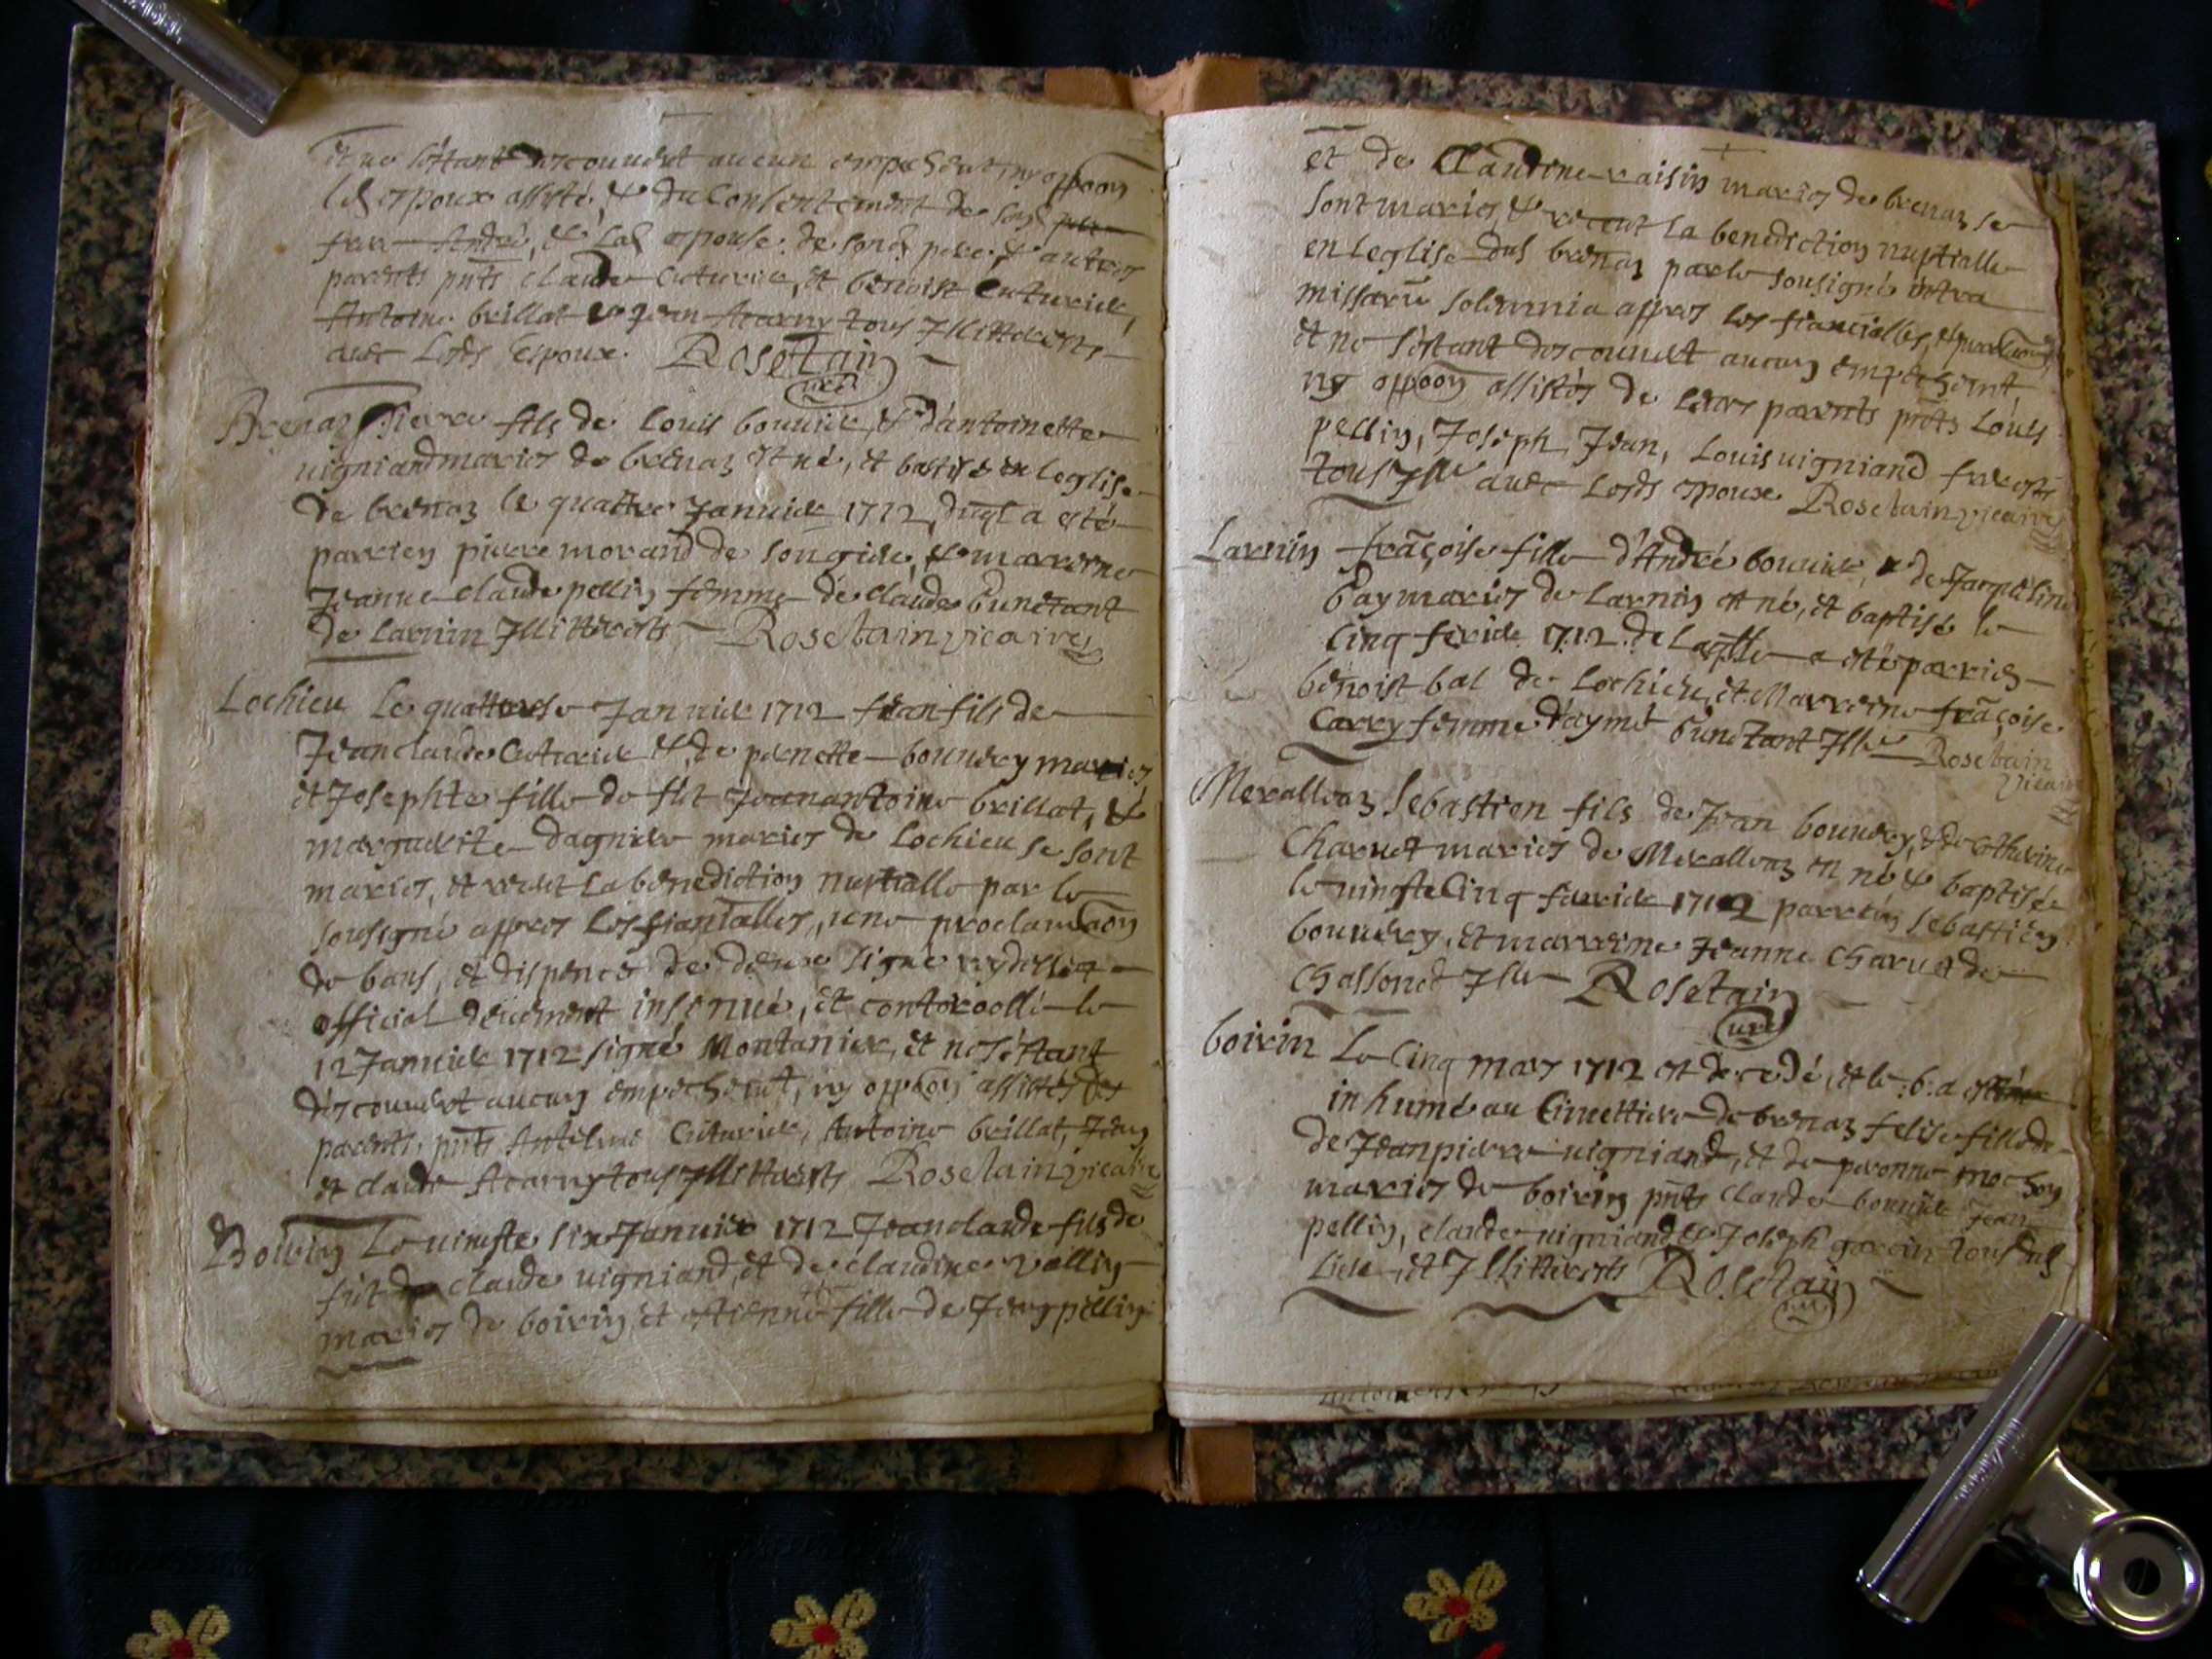 et ne s'estant descouvert aucun empechemt ny oppoon
led espoux assisté, & du consentement de son
frere André, & lad espouse de sond pere, & autres
parents pnts claude Cuturier, et benoist Cuturier,
Antoine brillat & jean Acarry tous Illitterets
avec lesds Espoux. Rosetain
curé
Brenaz Pierre fils de louis bouvier, & d'antoinette
vigniand mariés de brenaz est né, et batisé en leglise
de brenaz le quattre Janvier 1712, duql a esté
parrien pierre morand de songieu, & marreine
Jeanne claude pellin femme de claude
de Larnin Illitterets Rosetain vicaire
Lochieu Le quattorse Janvier 1712 Jean fils de
Jean claude Cuturier & de pernette bouvery mariés
et Josephte fille de fut Jean antoine brillat, &
marguerite dagnier mariés de Lochieu se sont
mariés, et receut La benediction nuptialle par le
sousigné appres les fiansalles, une proclamaon
de bans, et dispence de deux signe
official deuement insinué, et controollé le
12 Janvier 1712 signé Montanier, et ne s'estant
descouvert aucun empechemt, ny oppoon assistés des
parents, pnts Antelme Cuturier, Antoine brillat, Jean
et claude Acarry tous Illitterets Rosetain vicaire
Boirin Le vingte six Janvier 1712 Jean claude fils de
fut claude vigniand, et de claudine vallin
mariés de boirin, et estienne fille de Jean pellin
et de Claudine raisin mariés de brenaz se
sont mariés & receut La benediction nuptialle
en Leglise dud brenaz par le sousigné intra
missarũ solemnia appres les fiancialles,
et ne s'estant descouvert aucun empechemt
ny oppoon assistés de leurs parents pnts Louis
pellin, Joseph, Jean, Louis vigniand freres
tous Illet avec lesds espoux Rosetain vicaire
Larnin frãçoise fille d'André bouvier, & de Jacqueline
bay mariés de Larnin est né, et baptisé le
cinq fevrier 1712. de Laqlle a esté parrien
benoist bal de Lochieu, et Marreine frãçoise
Carry femme d'aymé Illet Rosetain
vicaire
Meralleaz Sebastien fils de Jean bouvery, & de catherine
Charvet mariés de Meralleaz est né & baptisé
le vingte cinq fevrier 1712 parrein sebastien
bouvery, et marreine Jeanne Charvet de
Chassonod Illet Rosetain
curé
boirin Le Cinq mars 1712 est decedé, et le 6: a esté
inhumé au Cimettiere de brenaz felise fille de
de Jean pierre vigniand, et de peronne mochon
mariés de boirin pnts claude bouvier Jean
pellin, claude vigniand & Joseph garin tous dud
Lieu, et Illitterets Rosetain
curé